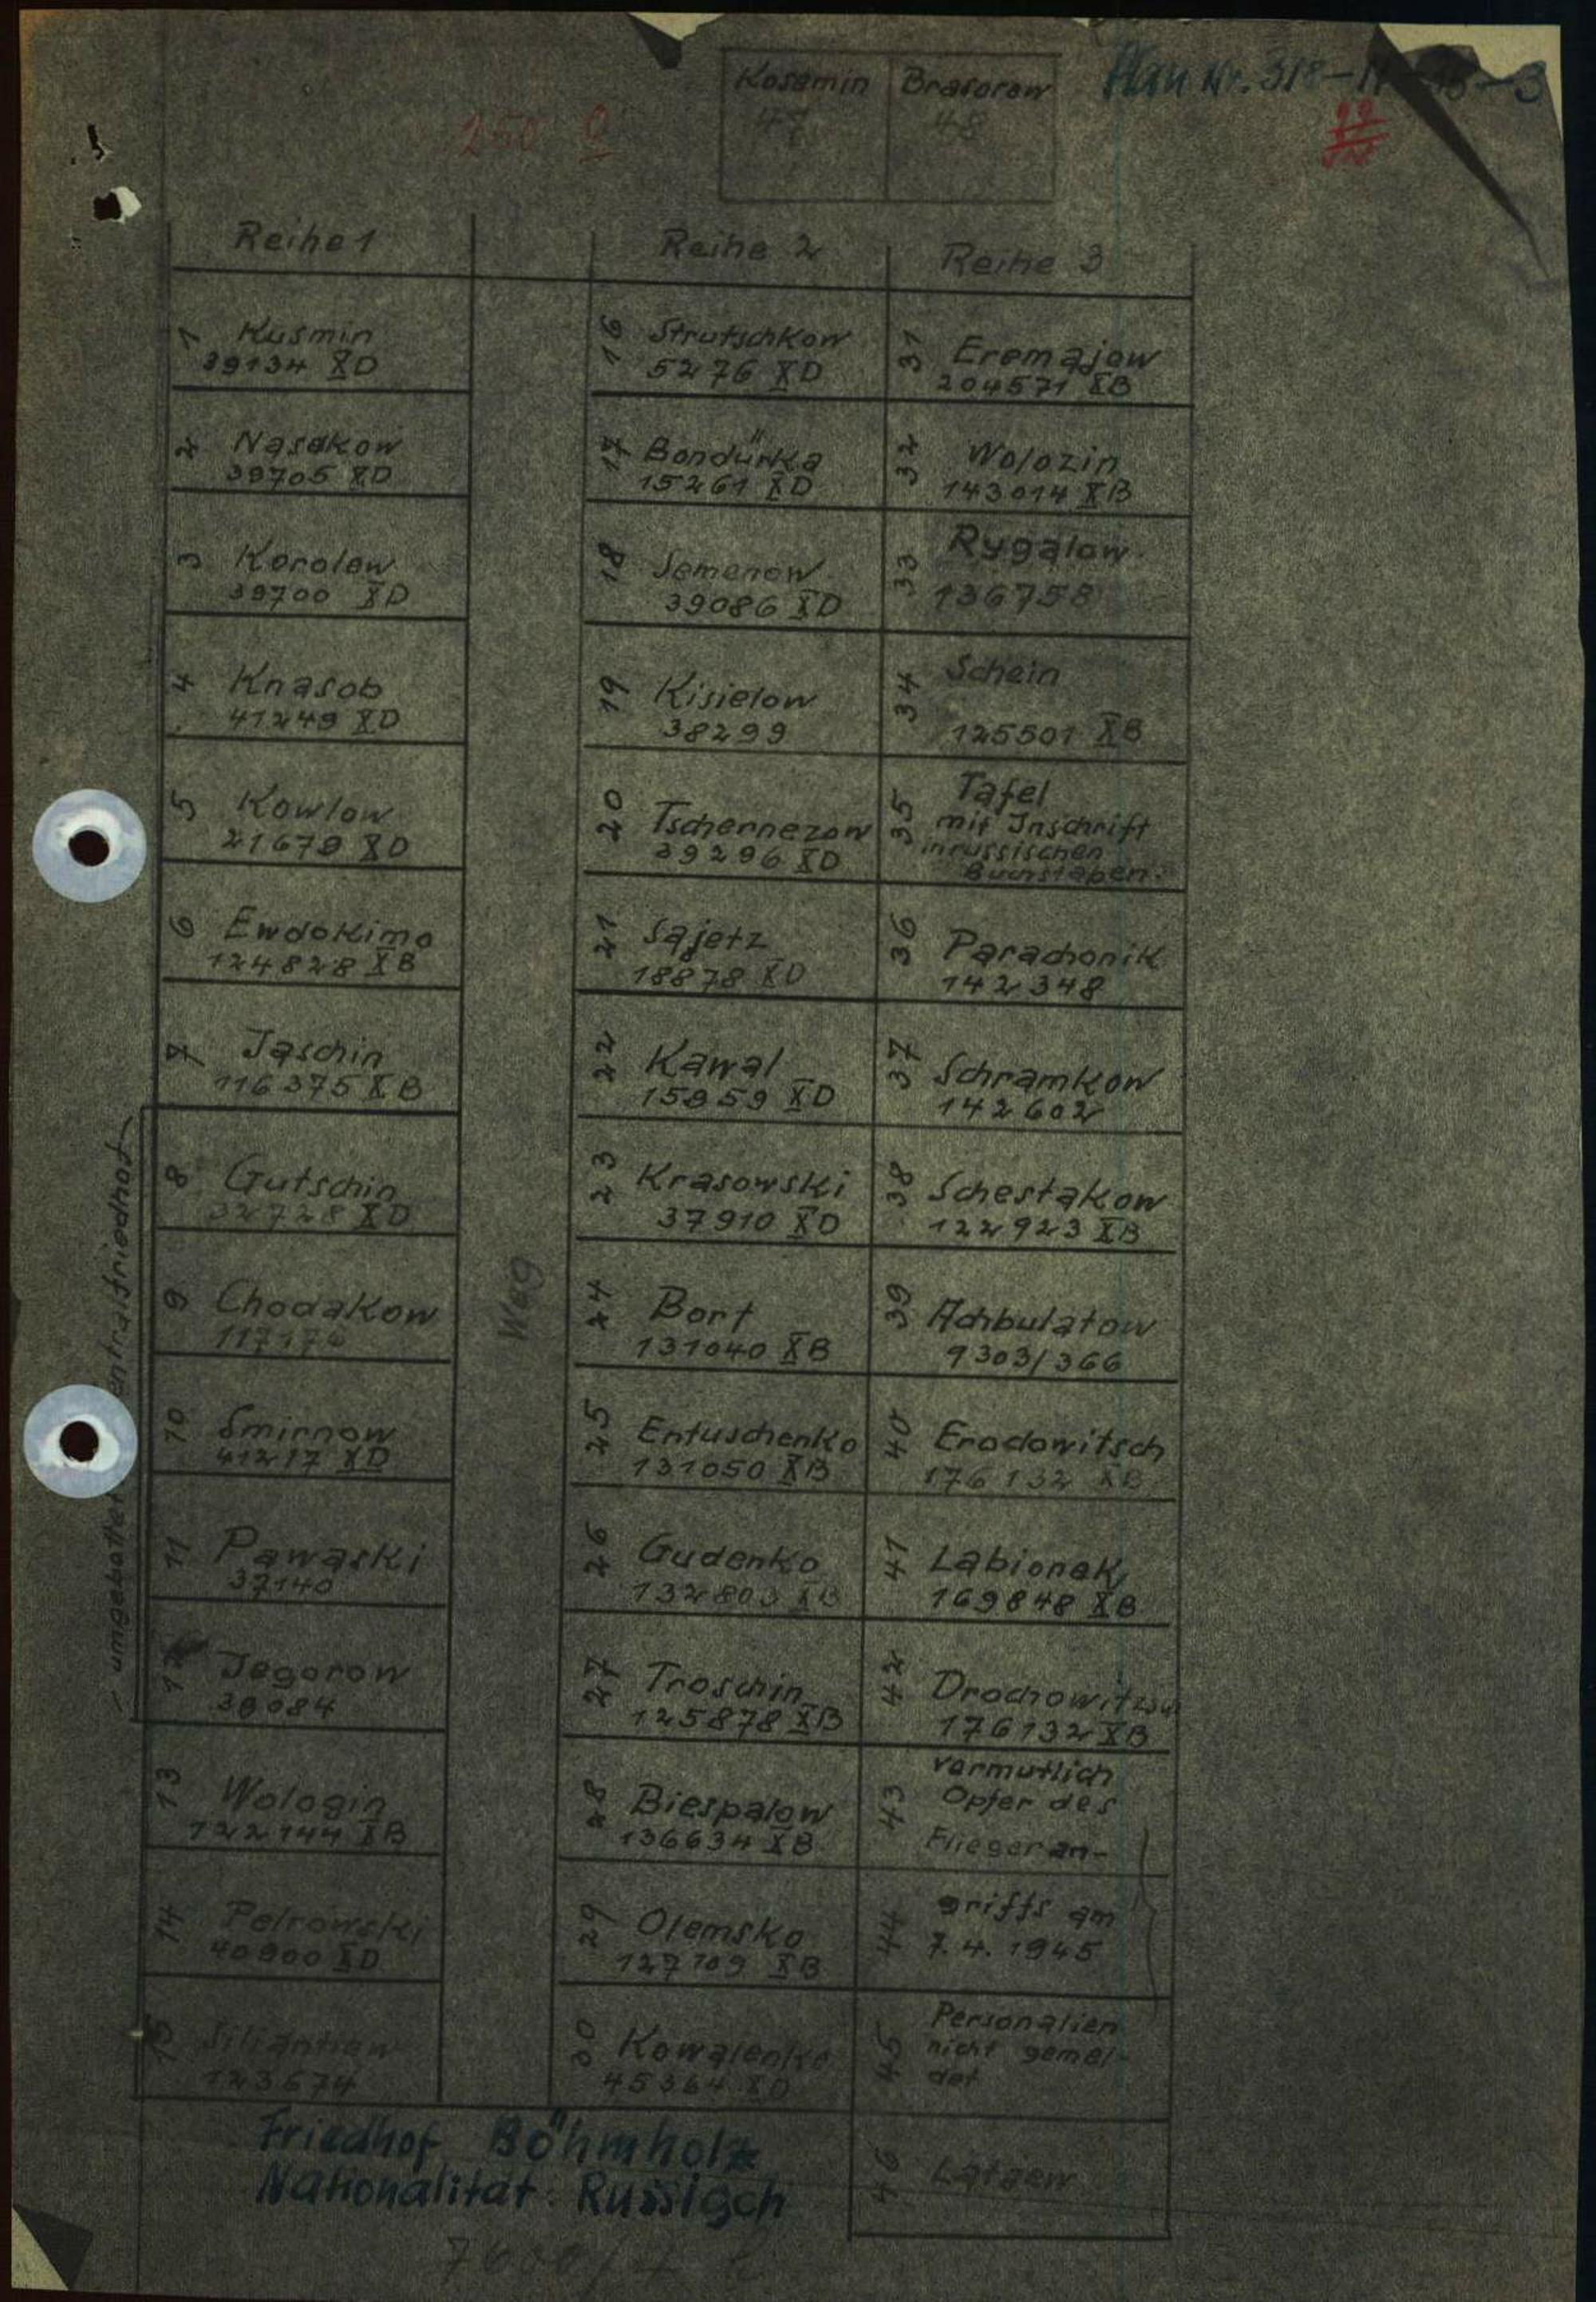 Kosemin
47
Brasorow
48
Plan Nr. 318
250
Reihe 1
Reihe 2
Reihe 3
1 Kusmin
39134 XD
2 Nasakow
39705 XD
3 Korolew
39700 XD
4 Knasob
41249 XD
5 Kowlow
21679 XD
6 Ewdokimo
124828 XB
7 Jaschin
116375 XB
8 Gutschin
32728 XD
9 Chodakow
10 Smirnow
41217 XD
11 Pawaski
37140
12 Jegorow
39084
13 Wologin
122144 XB
14 Petrowski
40900 XD
15
123674
Weg
16 Strutschkow
5276 XD
17 Bondürka
15261 XD
18 Semenow
39086 XD
19 Kisielow
38299
20 Tschernezow
39296 XD
21 Sajetz
18878 XD
22 Kawal
15959 XD
23 Krasowski
37910 XD
24 Bort
131040 XB
25 Entuschenko
131050 XB
26 Gudenko
132803 XB
27 Troschin
125878 XB
28 Biespalow
136634 XB
29 Olemsko
127109 XB
30 Kowalenko
45364 XD
31 Eremajow
204571 XB
32 Wolozin
143014 XB
33 Rygalow
136758
34 Schein
125501 XB
35 Tafel
mit Inschrift
in russischen
Buchstaben.
36 Parachonik
142348
37 Schramkow
142602
38 Schestakow
122923 XB
39 Achbulatow
9303/366
40 Erodowitsch
176132 XB
41 Labionek
169848 XB
42 Drochowitzsch
176132 XB
43 vermutlich
Opfer des
Flieger an-
44 griffs am
7.4.1945
45 Personalien
nicht gemel-
det
46 Lataew
Friedhof Böhmholz
Nationalität: Russisch